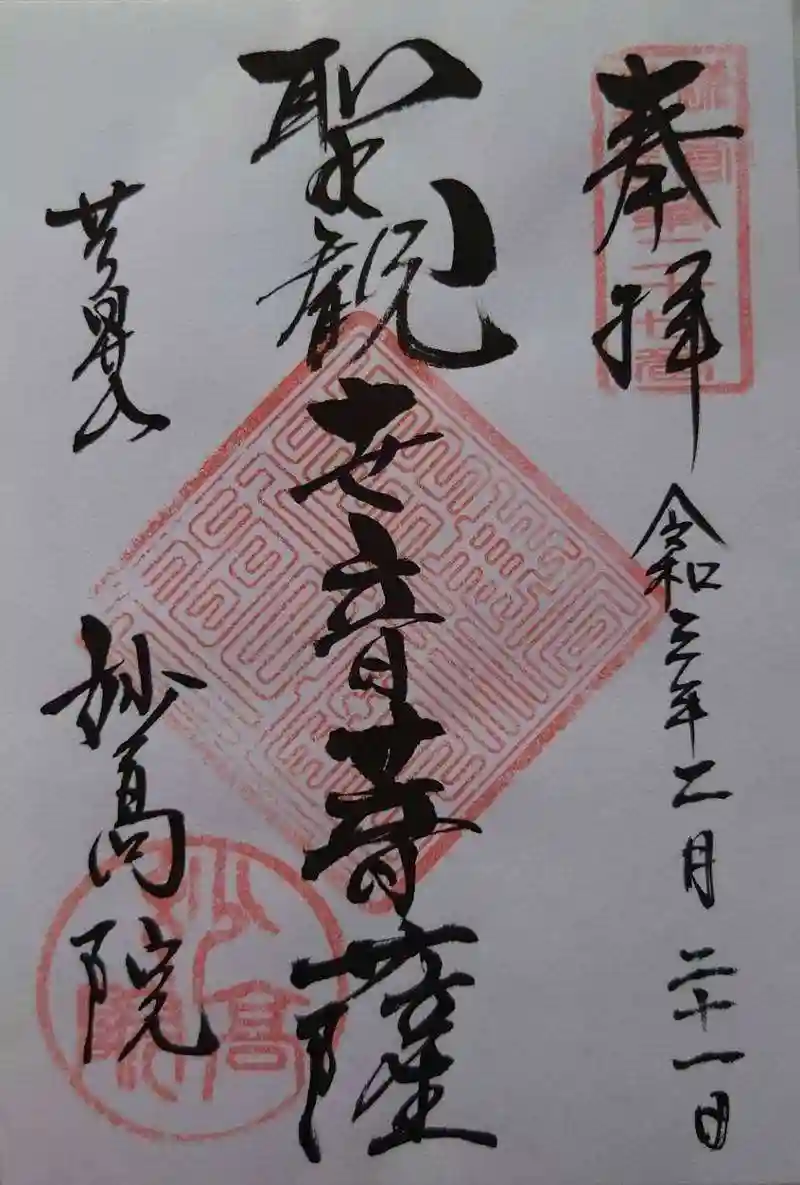 奉拝 令和三年二月二十一日
聖観世音菩薩
妙高院
妙高院